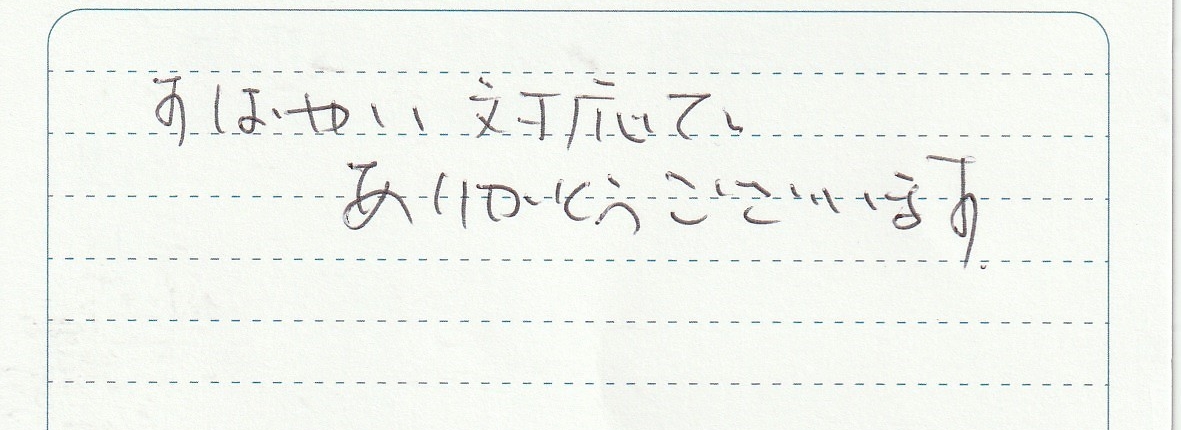 すばやい対応で、
ありがとうございます.